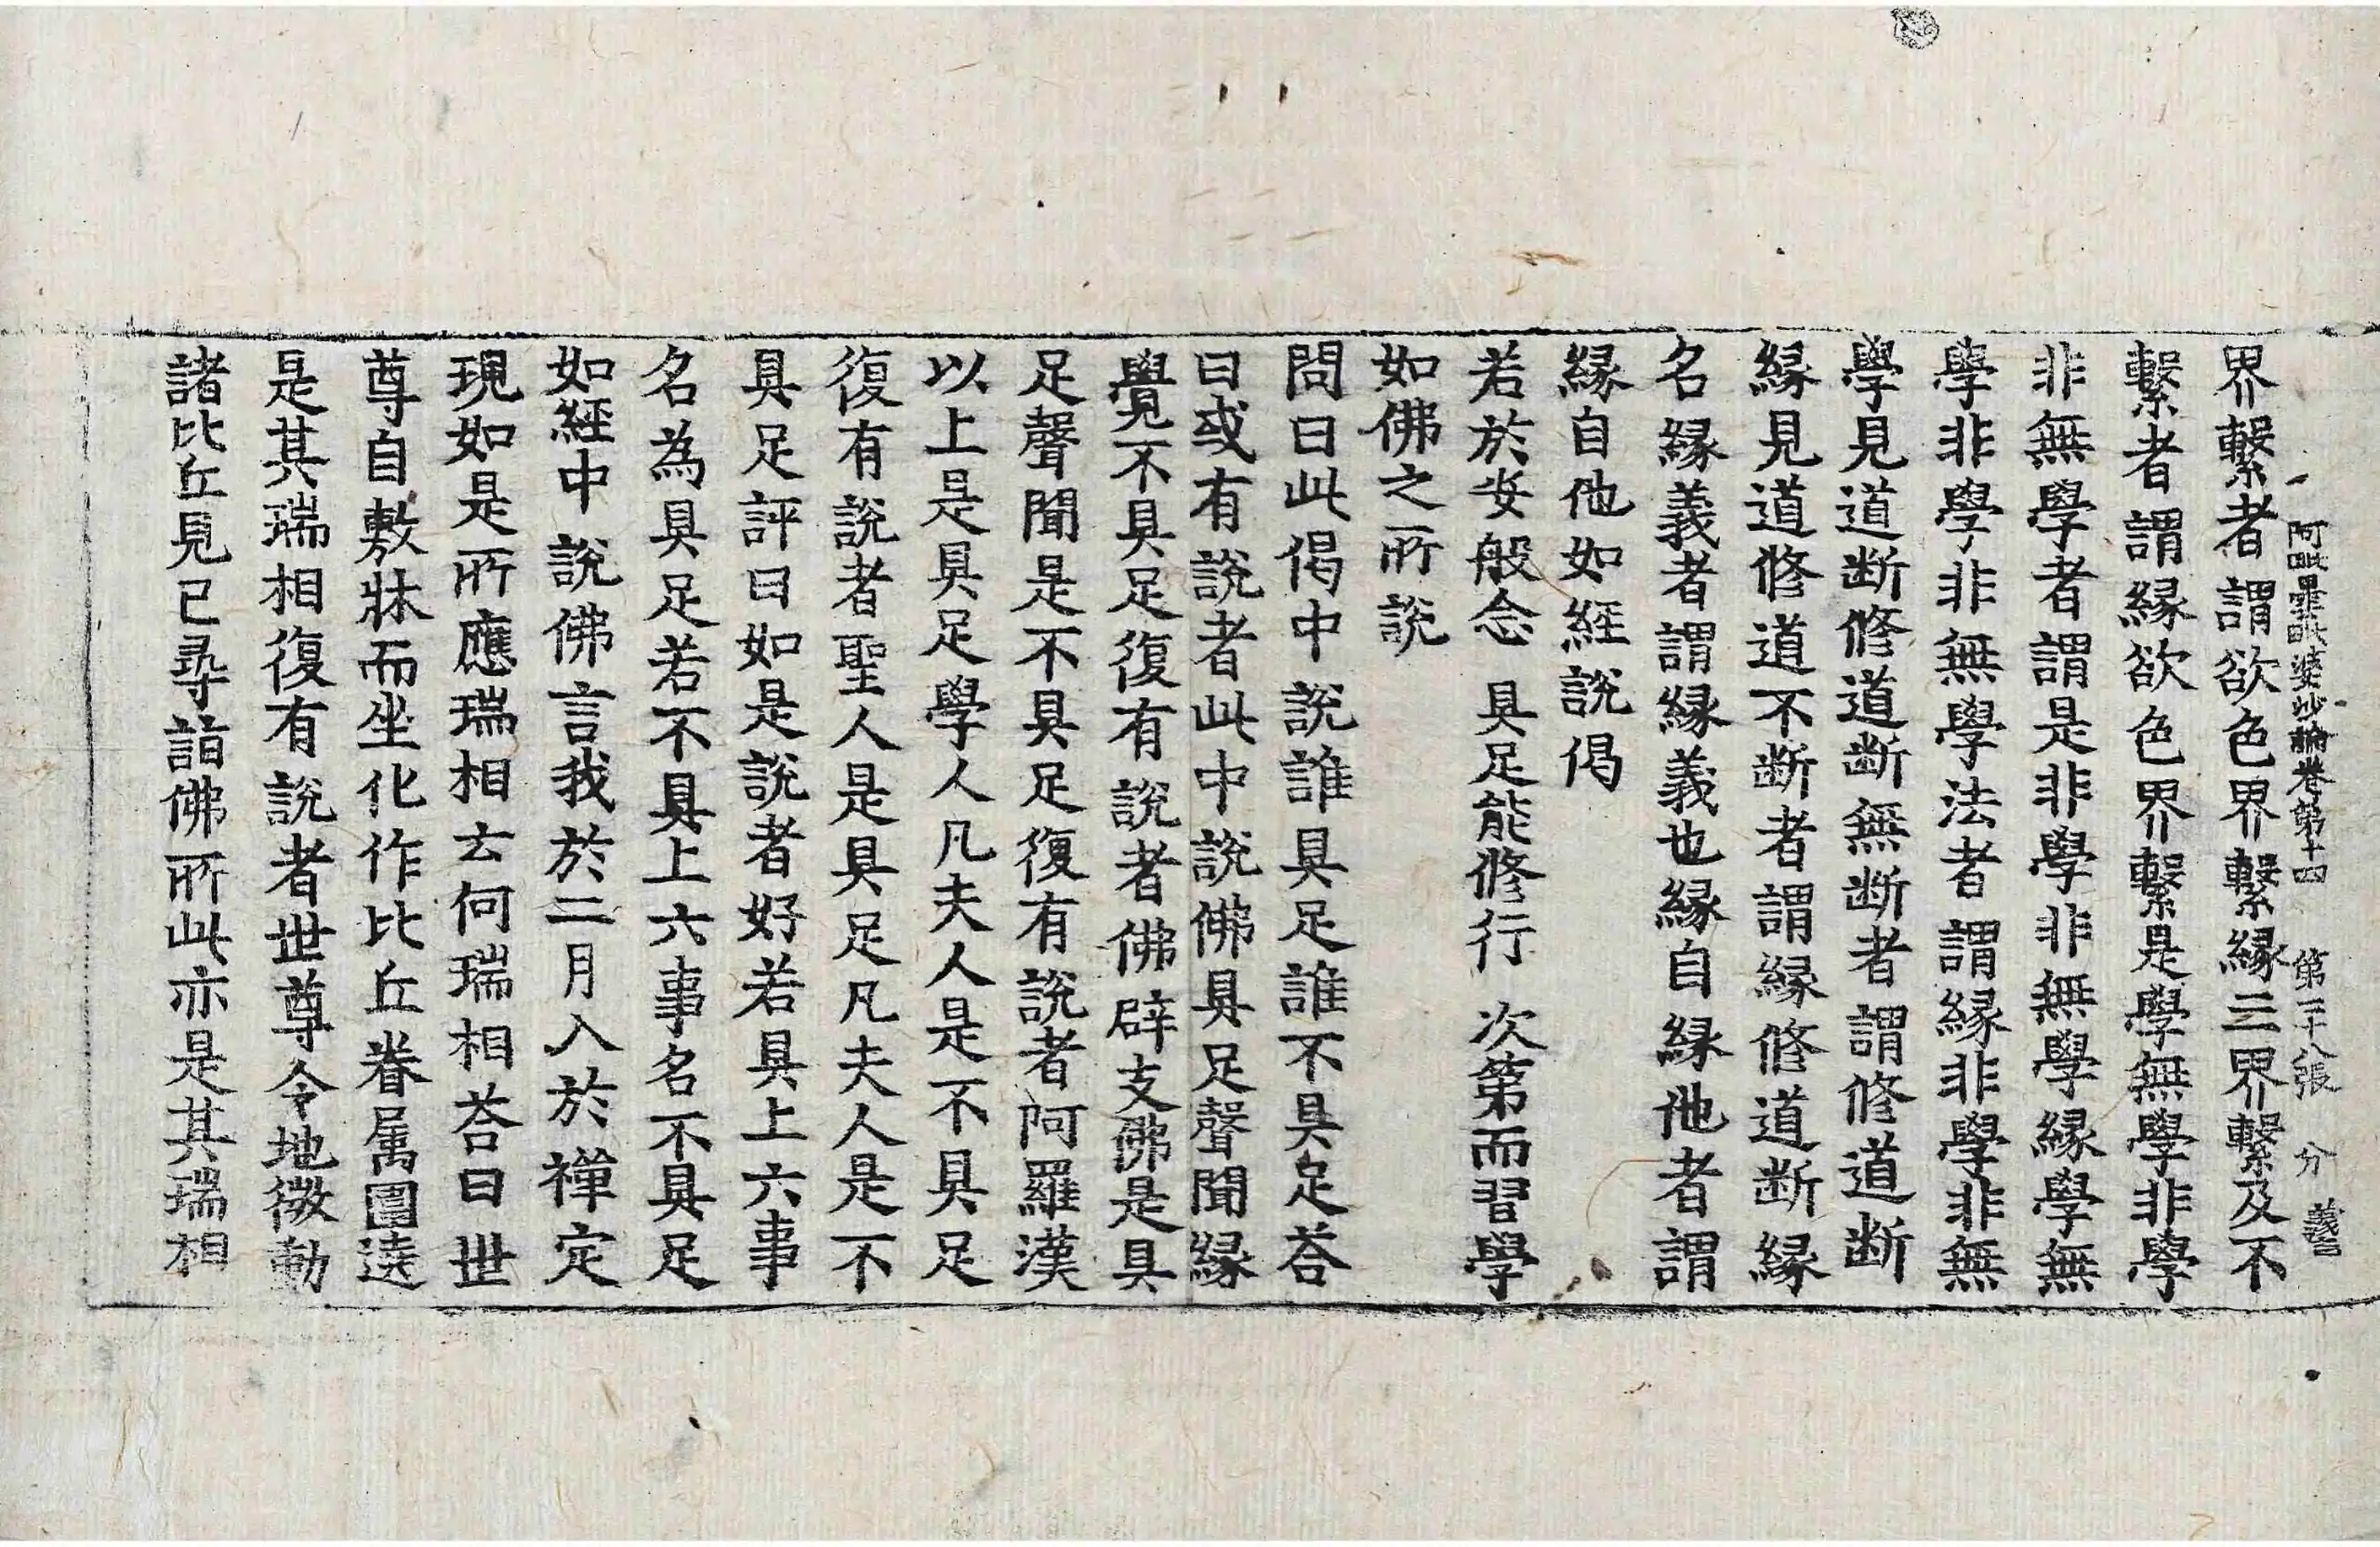 阿毗曇毗婆沙論卷第十四 第二十八張 分 義
界繫者謂欲色界繫緣三界繫及不
繫者謂緣欲色界繫是學無學非學
非無學者謂是非學非無學緣學無
學非學非無學法者謂緣非學非無
學見道斷修道斷無斷者謂修道斷
緣見道修道不斷者謂緣修道斷緣
名緣義者謂緣義也緣自緣他者謂
緣自他如經說偈
若於安般念 具足能修行 次第而習學
如佛之所說
問曰此偈中說誰具足誰不具足荅
曰或有說者此中說佛具足聲聞緣
覺不具足復有說者佛辟支佛是具
足聲聞是不具足復有說者阿羅漢
以上是具足學人凡夫人是不具足
復有說者聖人是具足凡夫人是不
具足評曰如是說者好若具上六事
名為具足若不具上六事名不具足
如經中說佛言我於二月入於禪定
現如是所應瑞相云何瑞相荅曰世
尊自敷牀而坐化作比丘眷属圍遶
是其瑞相復有說者世尊令地微動
諸比丘見已尋詣佛所此亦是其瑞相